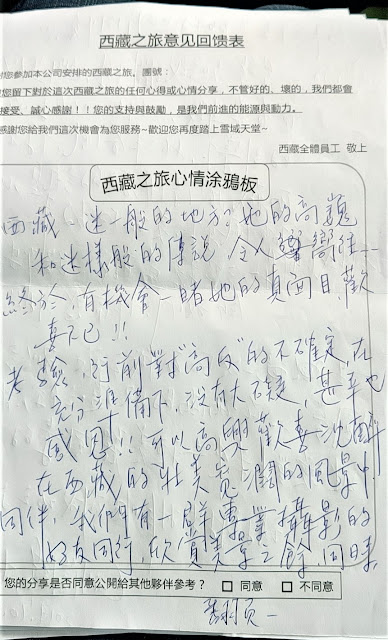 西藏之旅意见回馈表
謝您參加本公司安排的西藏之旅．團號：
您留下對於這次西藏之旅的任何心得或心情分享，不管好的、壞的，我們都會
接受、誠心感謝！！您的支持與鼓勵，是我們前進的能源與動力。
感謝您給我們這次機會為您服務~歡迎您再度踏上雪域天堂~
西藏全體員工 敬上
西藏之旅心情涂鴉板
西藏－迷一般的地方？她的高巍
和迷樣般的傳說 令人嚮往--
終於，有機會一睹她的真面目，歡
喜不已!!
考驗，行前對"高反"的不確定，在
充分準備下，沒有大礙，甚幸也
感恩!! 可以高興歡喜沈醉
在西藏的壯美寬濶的風景中
同伴，我們有一群專業攝影的
好友同行，欣賞美景之餘，同時
您的分享是否同意公開給其他夥伴參考？ □ 同意 □ 不同意